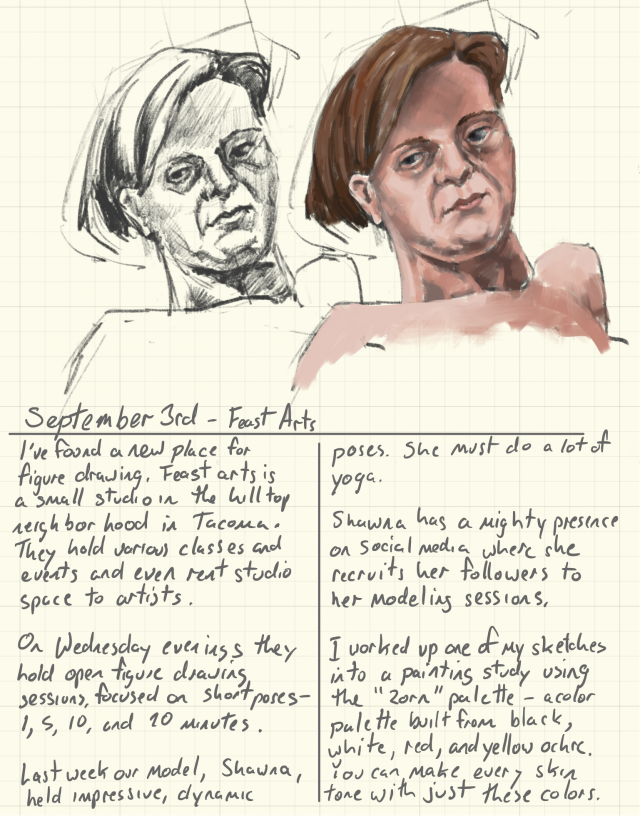 September 3rd - Feast Arts
I've found a new place for
figure drawing. Feast arts is
a small studio in the hilltop
neighborhood in Tacoma.
They hold various classes and
events and even rent studio
space to artists.
On Wednesday evenings they
hold open figure drawing
sessions, focused on short poses-
1, 5, 10, and 20 minutes.
Last week our model, Shawna,
held impressive, dynamic
poses. She must do a lot of
yoga.
Shawna has a mighty presence
on social media where she
recruits her followers to
her modeling sessions.
I worked up one of my sketches
into a painting study using
the "Zorn" palette - a color
palette built from black,
white, red, and yellow ochre.
You can make every skin
tone with just these colors.